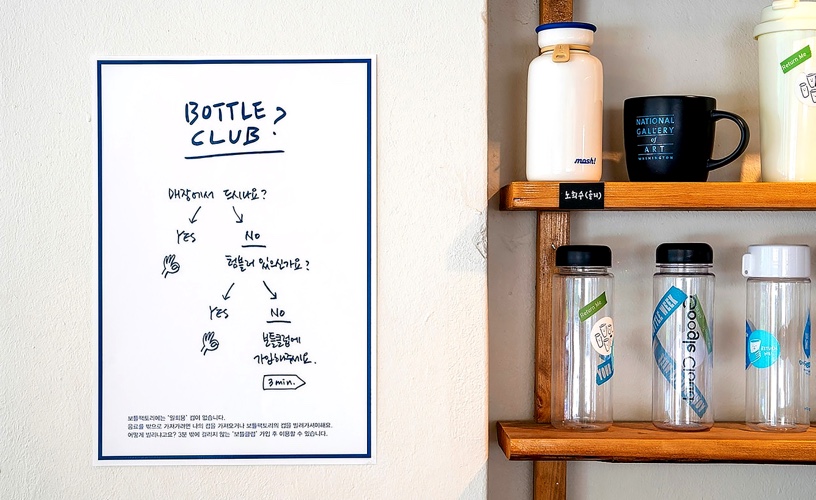 BOTTLE
CLUB?
매장에서 드시나요?
YES
NO
텀블러 있으신가요?
YES
NO
보틀클럽에
가입해주세요.
3 min.
보틀팩토리에는 '일회용' 컵이 없습니다.
음료를 밖으로 가져가려면 나의 컵을 가져오거나 보틀팩토리의 컵을 빌려가셔야해요.
어떻게 빌리냐고요? 3분 밖에 걸리지 않는 '보틀클럽' 가입 후 이용할 수 있습니다.
mosh!
NATIONAL
GALLERY
of
ART
WASHINGTON
Return Me
Return Me
YOUR
BOTTLE WEEK
Google Cloud